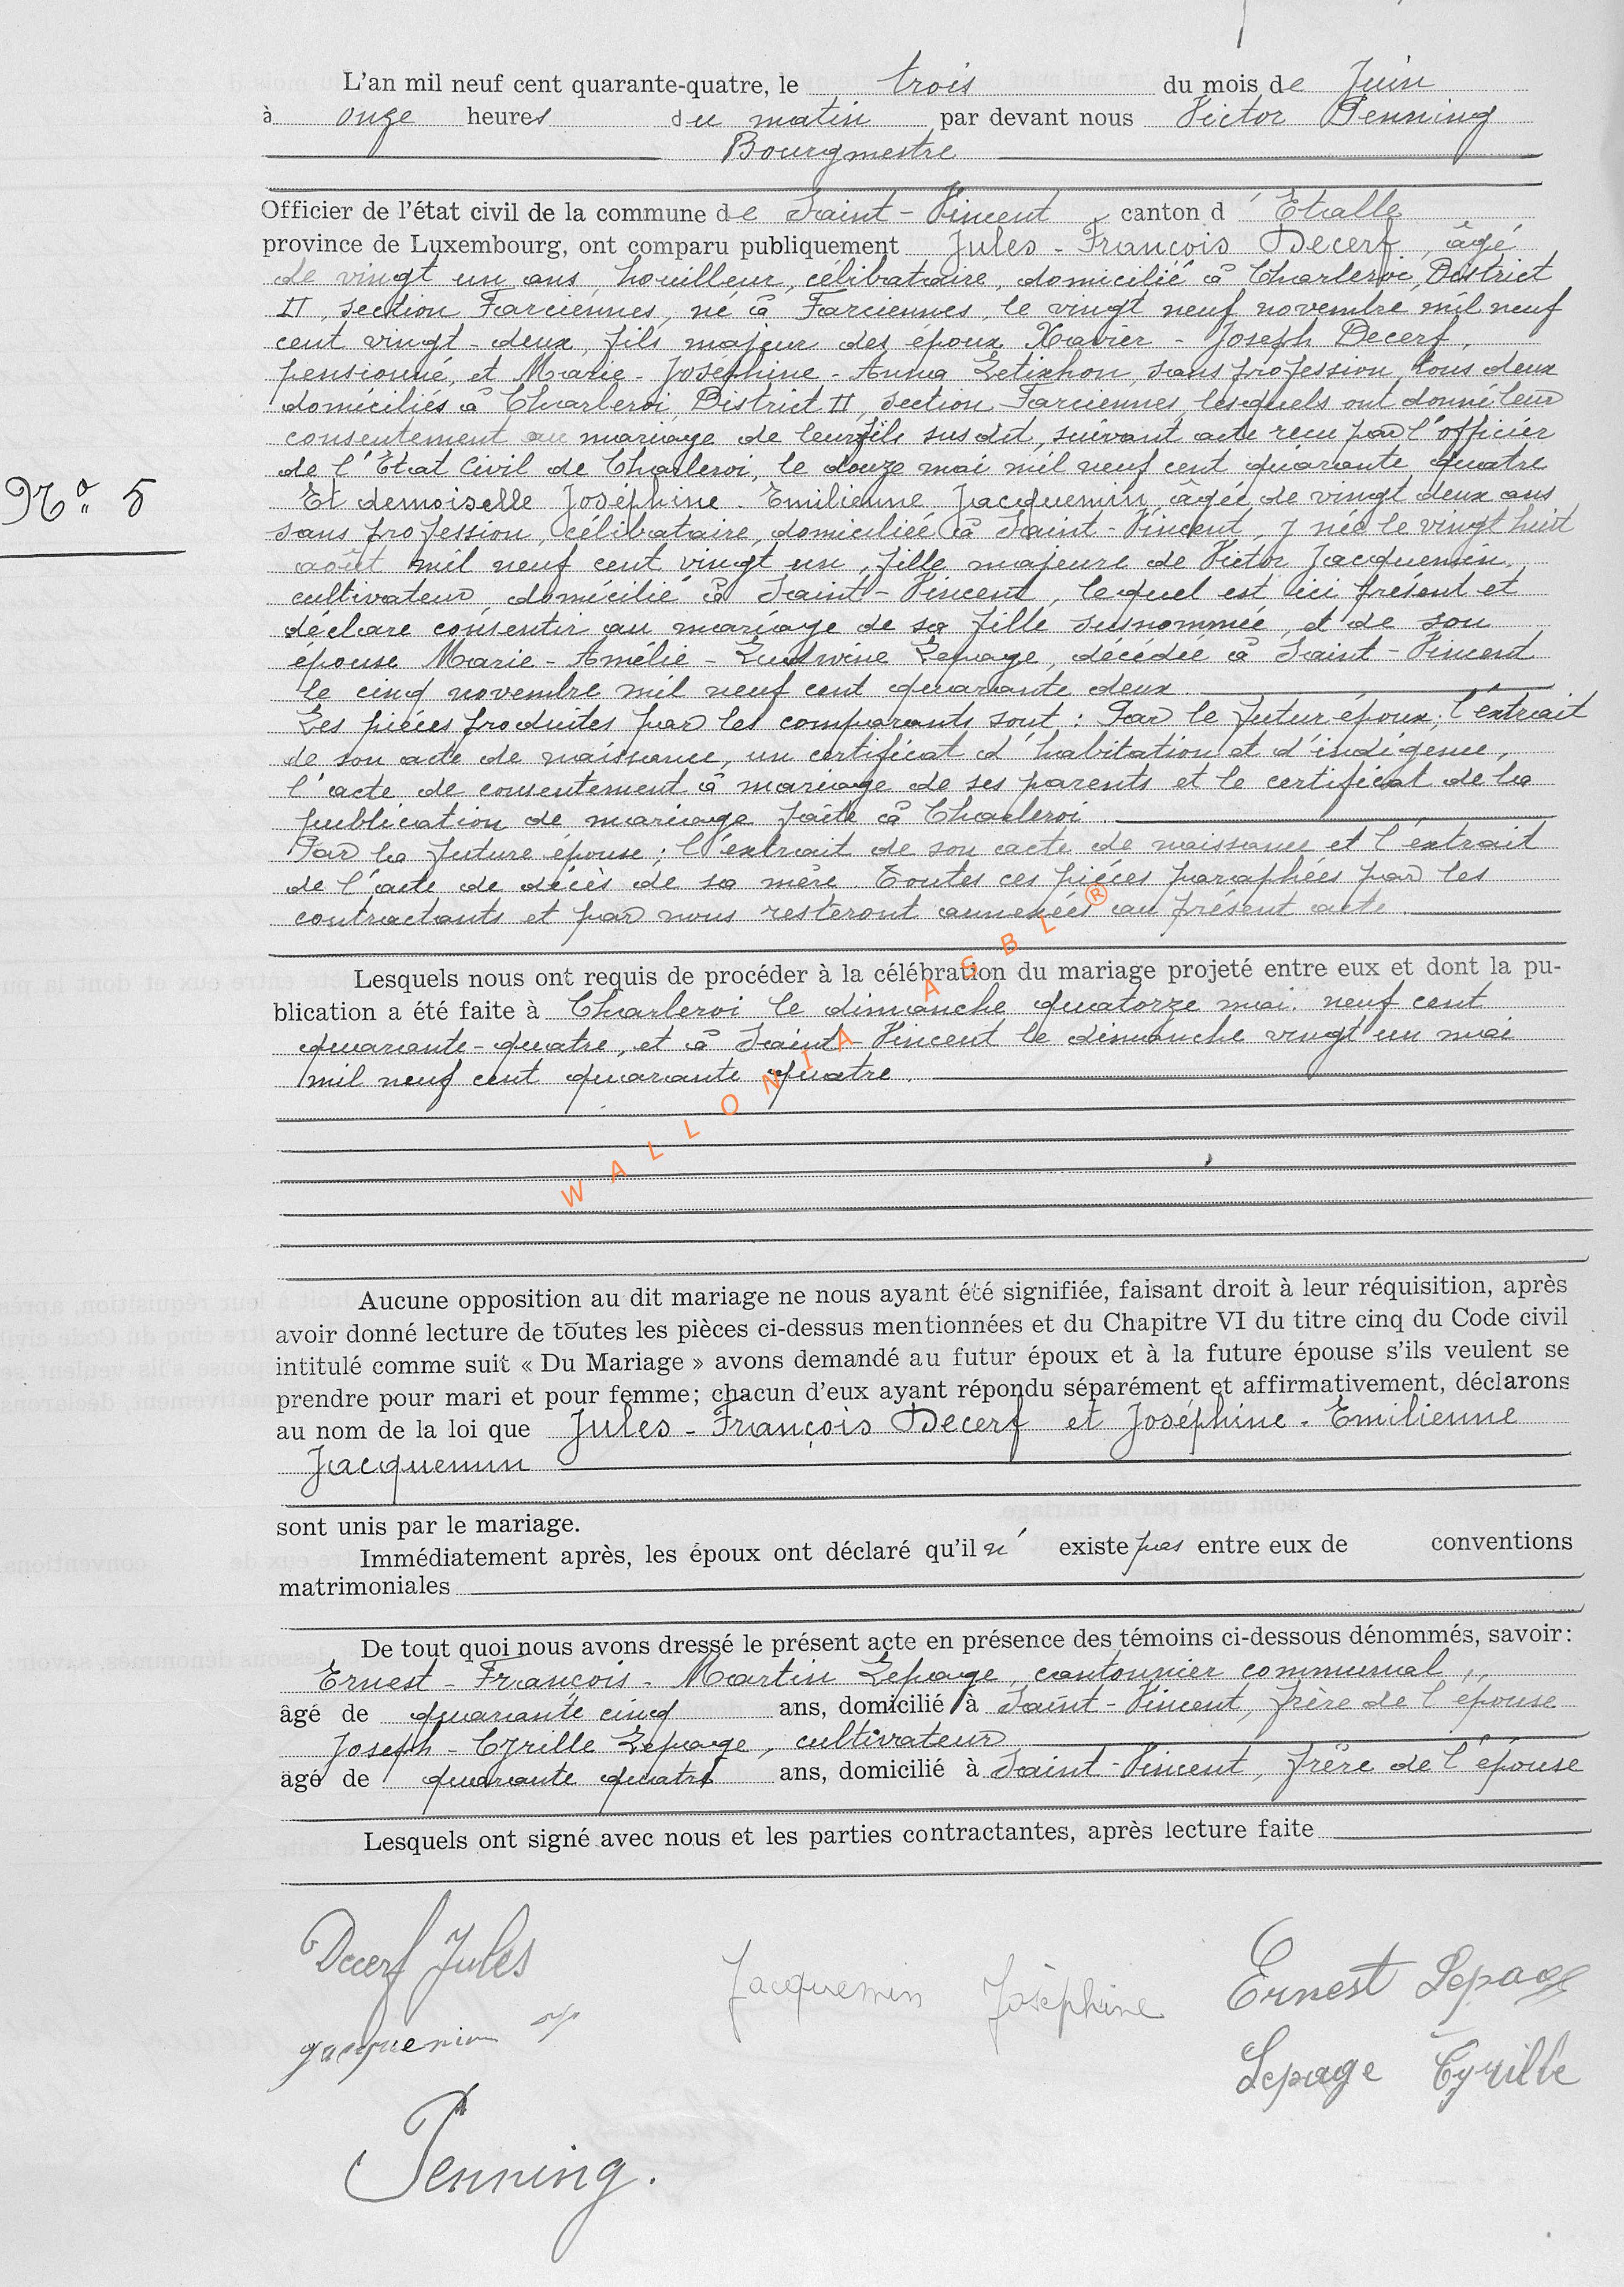 L'an mil neuf cent quarante-quatre, le trois du mois de Juin
à onze heures du matin par devant nous Victor Penning
Bourgmestre
Officier de l'état civil de la commune de Saint-Vincent canton d'Etalle
province de Luxembourg, ont comparu publiquement Jules-François Decerf, âgé
de vingt un ans, houilleur, célibataire, domicilié à Charleroi, District
II, section Farciennes, né à Farciennes, le vingt neuf novembre mil neuf
cent vingt-deux, fils majeur des époux Xavier-Joseph Decerf,
pensionné, et Marie-Joséphine-Anna Letixhon, sans profession, tous deux
domiciliés à Charleroi, District II, section Farciennes, lesquels ont donné leur
consentement au mariage de leur fils susdit, suivant acte recu par l'officier
de l'Etat Civil de Charleroi, le douze mai mil neuf cent quarante quatre
N° 5
Et demoiselle Joséphine-Emilienne Jacquemin, âgée de vingt deux ans
sans profession, célibataire, domiciliée à Saint-Vincent, y née le vingt huit
août mil neuf cent vingt un, fille majeure de Victor Jacquemin,
cultivateur, domicilié à Saint-Vincent, lequel est ici présent et
déclare consentir au mariage de sa fille susnommée, et de son
épouse Marie-Amélie-Ludwine Lepage, décédée à Saint-Vincent
le cinq novembre mil neuf cent quarante deux.
Les pièces produites par les comparants sont : Par le futur époux; l'extrait
de son acte de naissance, un certificat d'habitation et d'indigence,
l'acte de consentement à mariage de ses parents et le certificat de la
publication de mariage faite à Charleroi
Par la future épouse; l'extrait de son acte de naissance et l'extrait
de l'acte de décès de sa mère. Toutes ces pièces paraphées par les
contractants et par nous resteront annexées au présent acte.
Lesquels nous ont requis de procéder à la célébration du mariage projeté entre eux et dont la pu-
blication a été faite à Charleroi le dimanche quatorze mai neuf cent
quarante-quatre, et à Saint-Vincent le dimanche vingt un mai
mil neuf cent quarante quatre.
WALLONIA ASBL®
Aucune opposition au dit mariage ne nous ayant été signifiée, faisant droit à leur réquisition, après
avoir donné lecture de toutes les pièces ci-dessus mentionnées et du Chapitre VI du titre cinq du Code civil
intitulé comme suit « Du Mariage » avons demandé au futur époux et à la future épouse s'ils veulent se
prendre pour mari et pour femme; chacun d'eux ayant répondu séparément et affirmativement, déclarons
au nom de la loi que Jules-François Decerf et Joséphine-Emilienne
Jacquemin
sont unis par le mariage.
Immédiatement après, les époux ont déclaré qu'il n'existe pas entre eux de conventions
matrimoniales
De tout quoi nous avons dressé le présent acte en présence des témoins ci-dessous dénommés, savoir :
Ernest-François-Martin Lepage, cantonnier communal,
âgé de quarante cinq ans, domicilié à Saint-Vincent, frère de l'épouse
Joseph-Cyrille Lepage, cultivateur
âgé de quarante quatre ans, domicilié à Saint-Vincent, frère de l'épouse
Lesquels ont signé avec nous et les parties contractantes, après lecture faite
Decerf Jules
Jacquemin Joséphine
Ernest Lepage
Jacquemin
Lepage Cyrille
Penning.